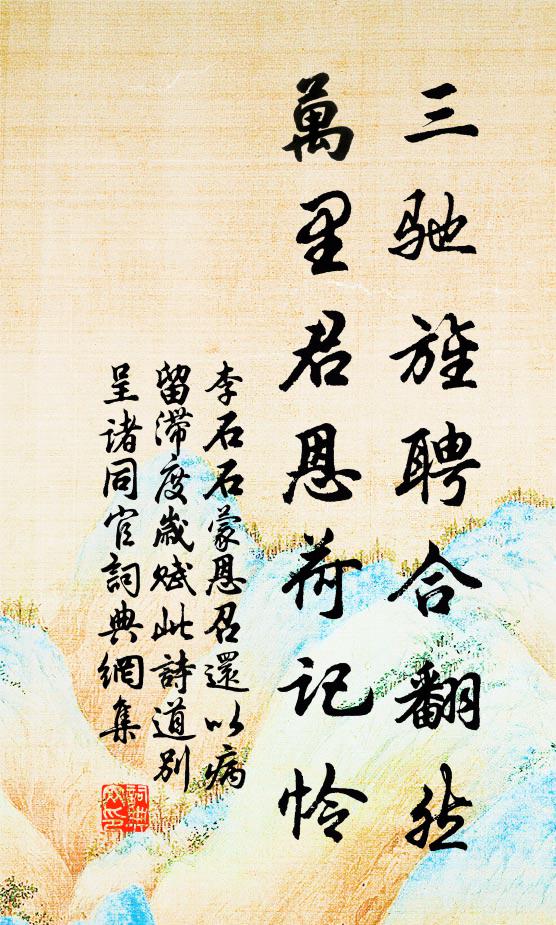 三驰旌聘合翻然
萬里君恩荷记怜
李石石蒙恩召還以病
留滯度歲赋此詩道别
呈诸同官詞典網集